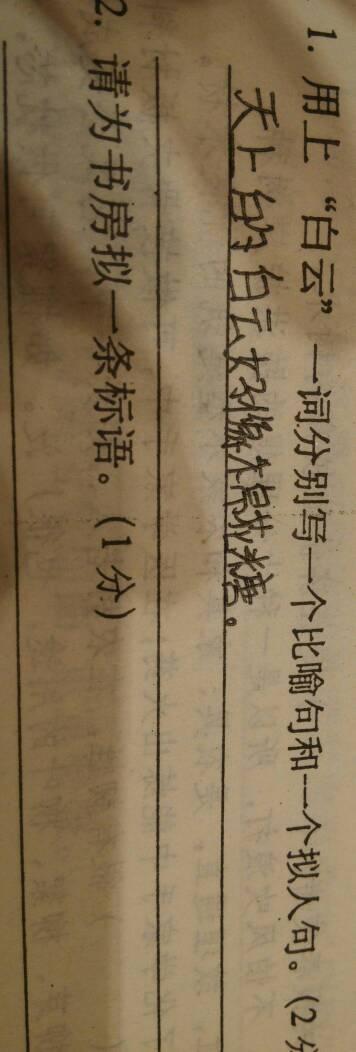 1. 用上“白云”一词分别写一个比喻句和一个拟人句。(2分
天上的白云好像棉花糖。
2. 请为书房拟一条标语。(1分)